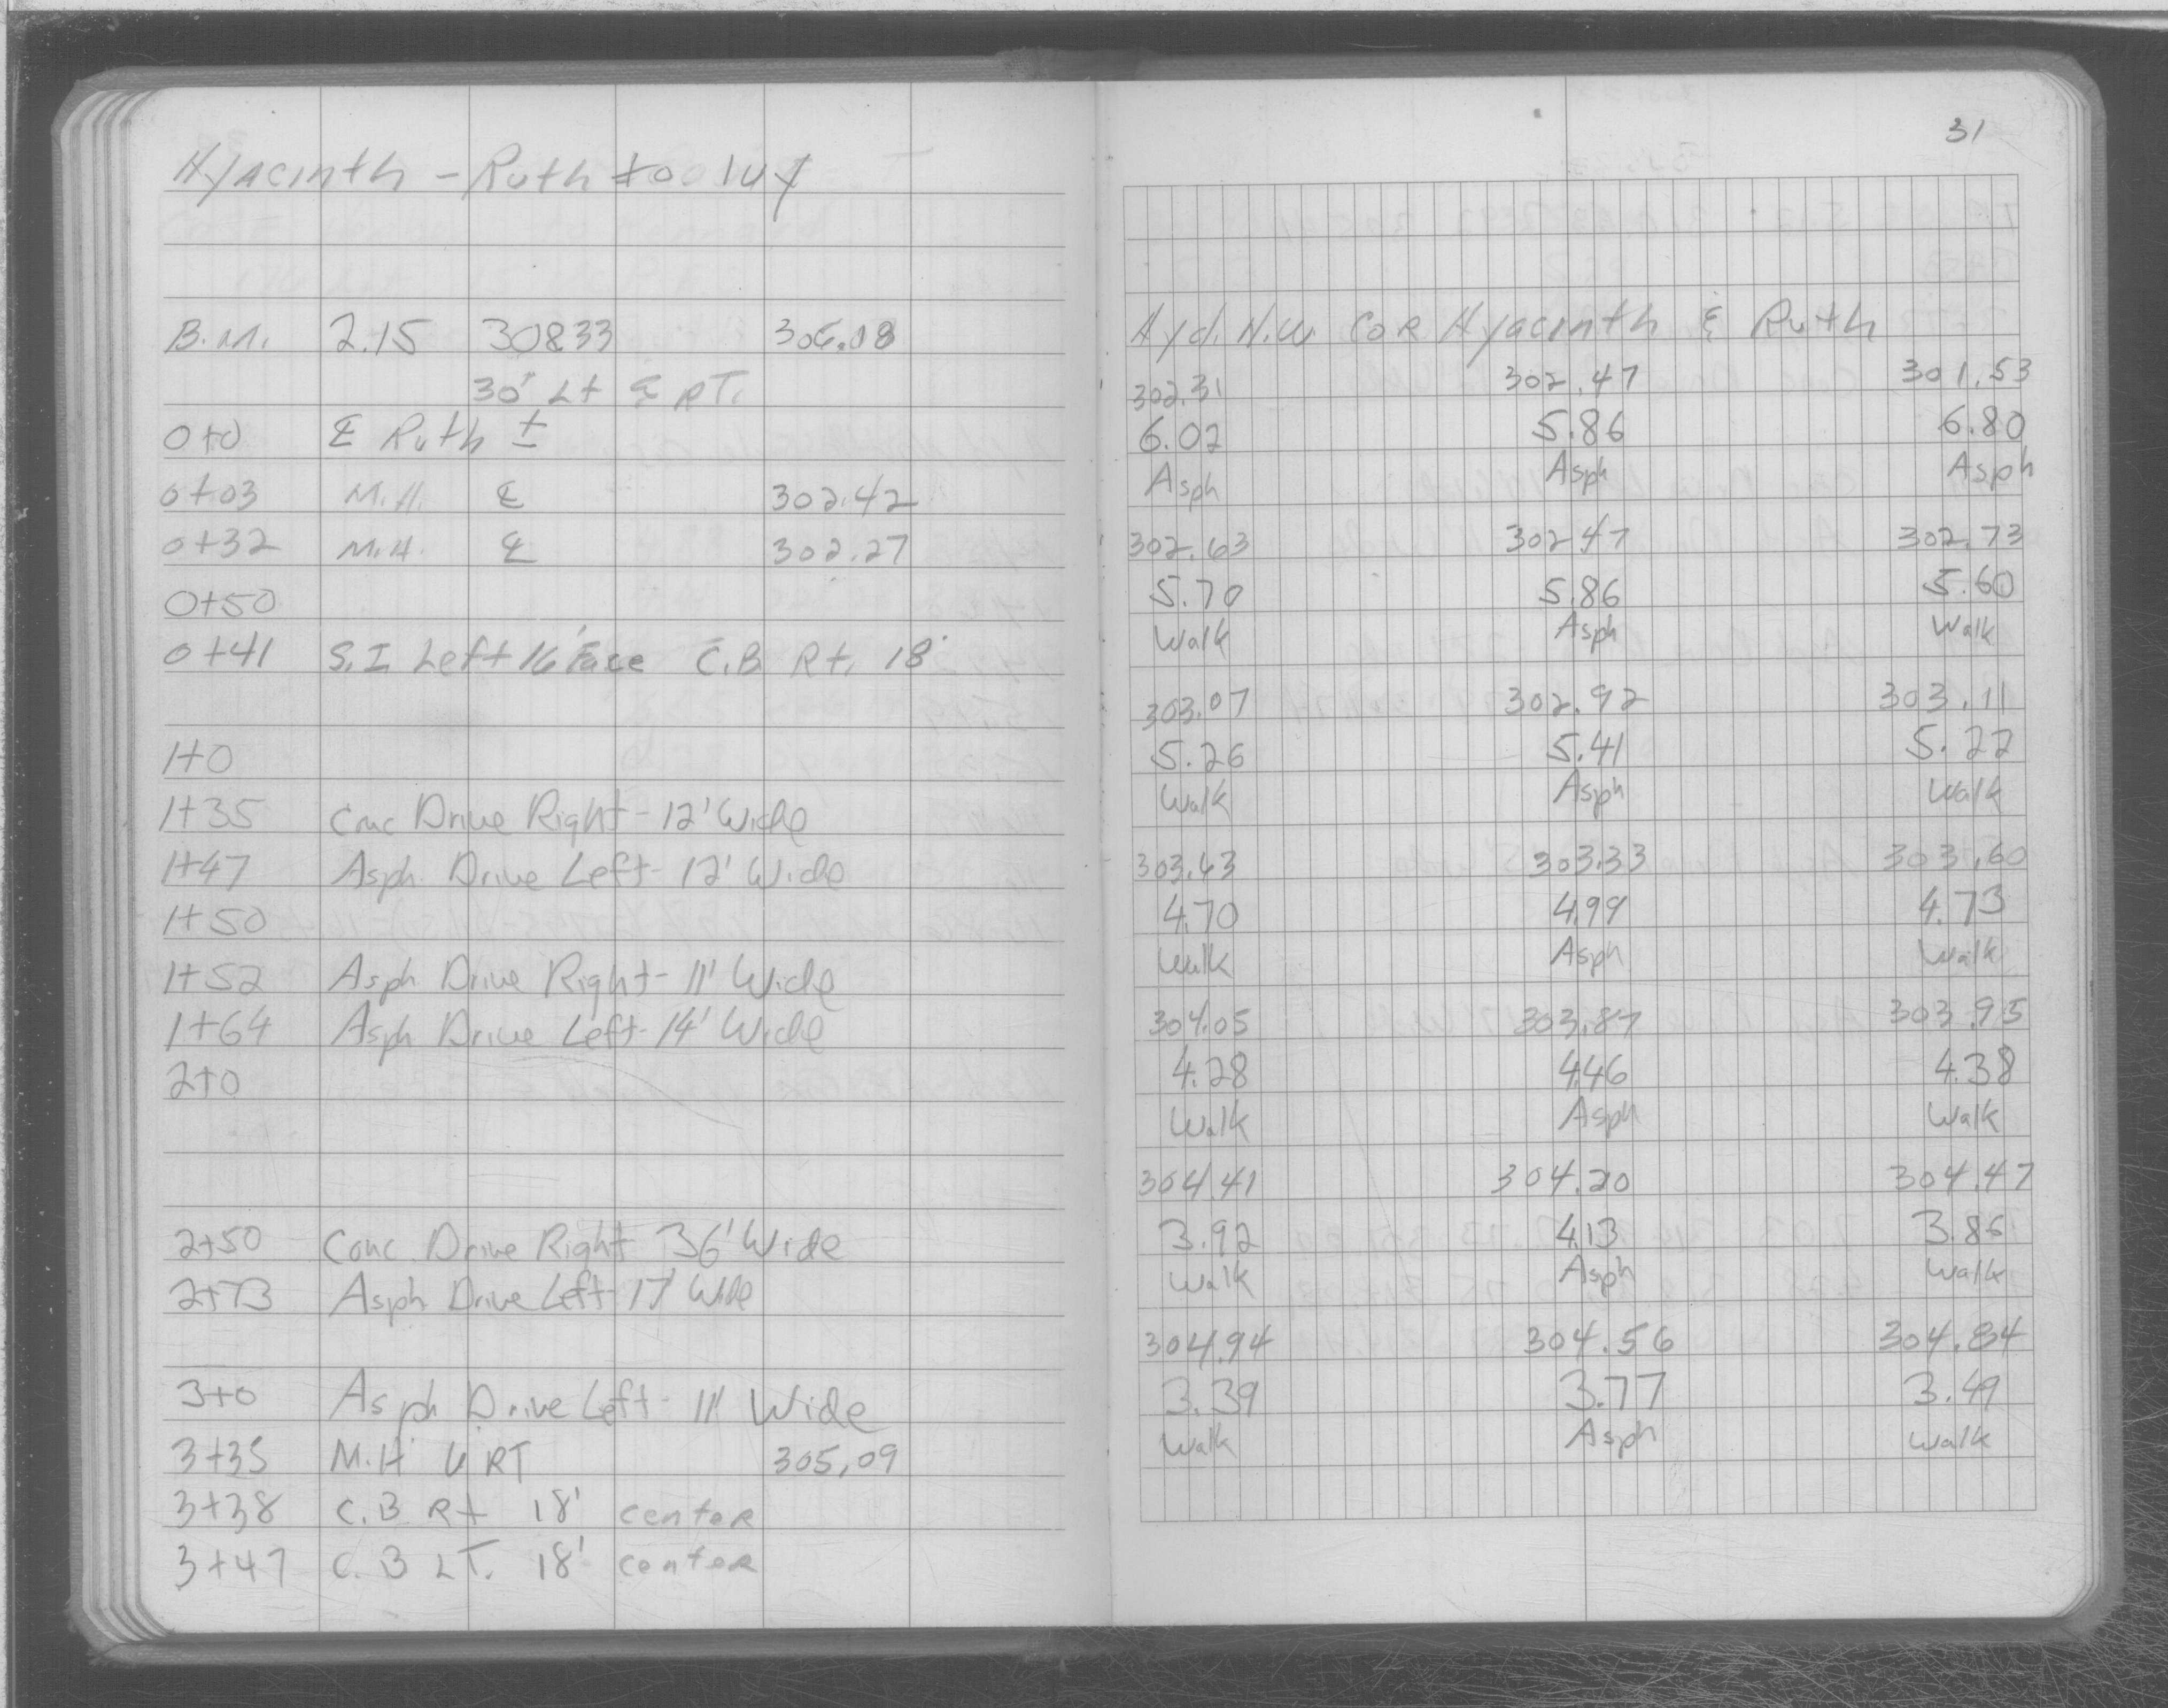 Hyacinth - Ruth to Ivy
B.M. 2.15 30833 306.18
30' Lt & RT.
0+0 ℄ Ruth ±
0+03 M.H. ℄ 302.42
0+32 M.H. ℄ 302.27
0+50
0+41 S.I Left 16' Face C.B Rt. 18'
1+0
1+35 Conc Drive Right - 12' Wide
1+47 Asph. Drive Left - 12' Wide
1+50
1+52 Asph Drive Right - 11' Wide
1+64 Asph Drive Left - 14' Wide
2+0
2+50 Conc. Drive Right 36' Wide
2+73 Asph Drive Left - 17' Wide
3+0 Asph Drive Left - 11' Wide
3+35 M.H 6 RT 305.09
3+38 C.B Rt 18' center
3+47 C.B LT. 18' center
31
Hyd. N.W. Cor Hyacinth & Ruth
302.31 302.47 301.53
6.02 5.86 6.80
Asph Asph Asph
302.63 302 47 302.73
5.70 5.86 5.60
Walk Asph Walk
303.07 302.92 303.11
5.26 5.41 5.22
Walk Asph Walk
303.63 303.33 303.60
4.70 4.99 4.73
Walk Asph Walk
304.05 303.87 303.95
4.28 4.46 4.38
Walk Asph Walk
304.41 304.20 304.47
3.92 4.13 3.86
Walk Asph Walk
304.94 304.56 304.84
3.39 3.77 3.49
Walk Asph Walk